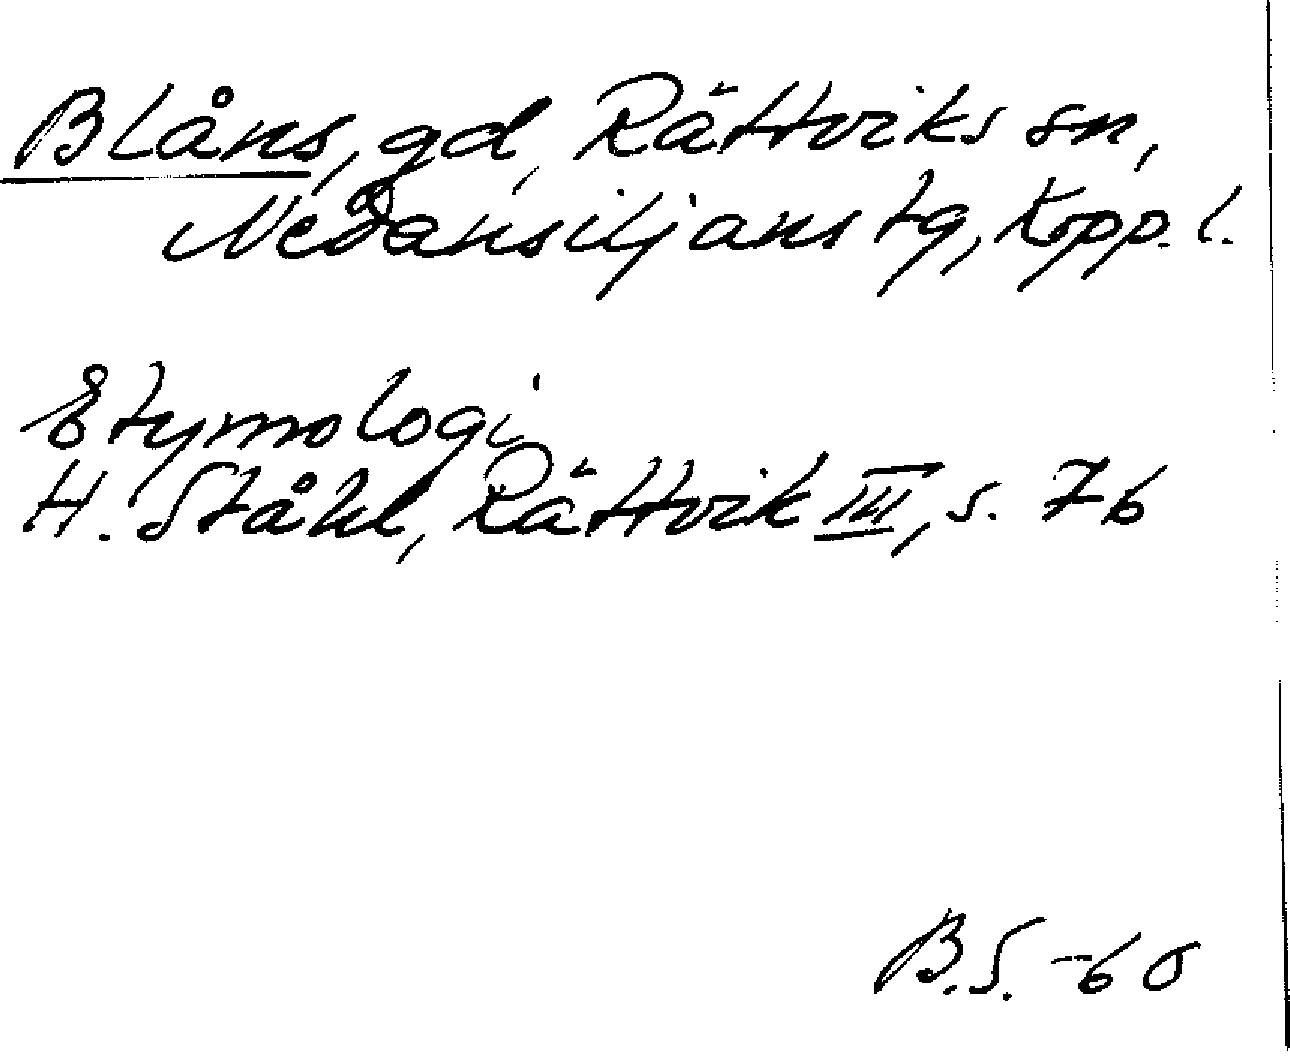 Blåns, gd, Rättviks sn,
Nedansiljans tg, Kopp. l.
Etymologi
H. Ståhl, Rättvik III, s. 76
B.S. -60